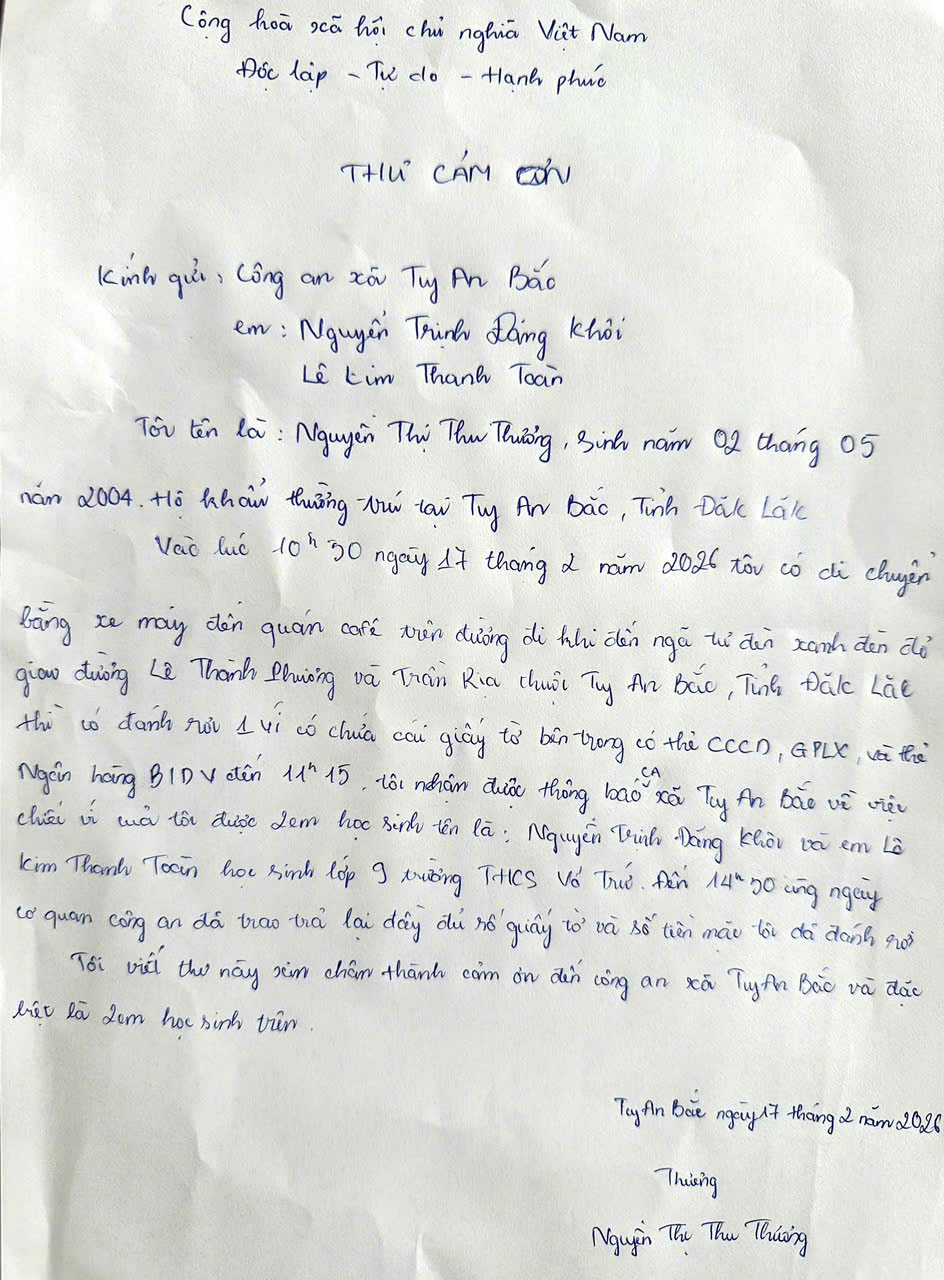 Cộng hoà xã hội chủ nghĩa Việt Nam
Độc lập - Tự do - Hạnh phúc
THƯ CẢM ƠN
Kính gửi: Công an xã Tuy An Bắc
em: Nguyễn Trịnh Đăng Khôi
Lê Kim Thanh Toàn
Tôi tên là: Nguyễn Thị Thu Thương, sinh năm 02 tháng 05
năm 2004. Hộ khẩu thường trú tại Tuy An Bắc, Tỉnh Đăk Lăk
Vào lúc 10h30 ngày 17 tháng 2 năm 2026 tôi có di chuyển
bằng xe máy đến quán café trên đường đi khi đến ngã tư đèn xanh đèn đỏ
giao đường Lê Thành Phương và Trần Rịa thuộc Tuy An Bắc, Tỉnh Đăk Lăk
thì có đánh rơi 1 ví có chứa các giấy tờ bên trong có thẻ CCCD, GPLX, và thẻ
Ngân hàng BIDV đến 11h15, tôi nhận được thông báo CA xã Tuy An Bắc về việc
chiếc ví của tôi được 2 em học sinh tên là: Nguyễn Trịnh Đăng Khôi và em Lê
Kim Thanh Toàn học sinh lớp 9 trường THCS Võ Trứ. Đến 14h30 cùng ngày
cơ quan công an đã trao trả lại đầy đủ số giấy tờ và số tiền mặc tôi đã đánh rơi
Tôi viết thư này xin chân thành cảm ơn đến công an xã Tuy An Bắc và đặc
biệt là 2 em học sinh trên.
Tuy An Bắc ngày 17 tháng 2 năm 2026
Thương
Nguyễn Thị Thu Thương